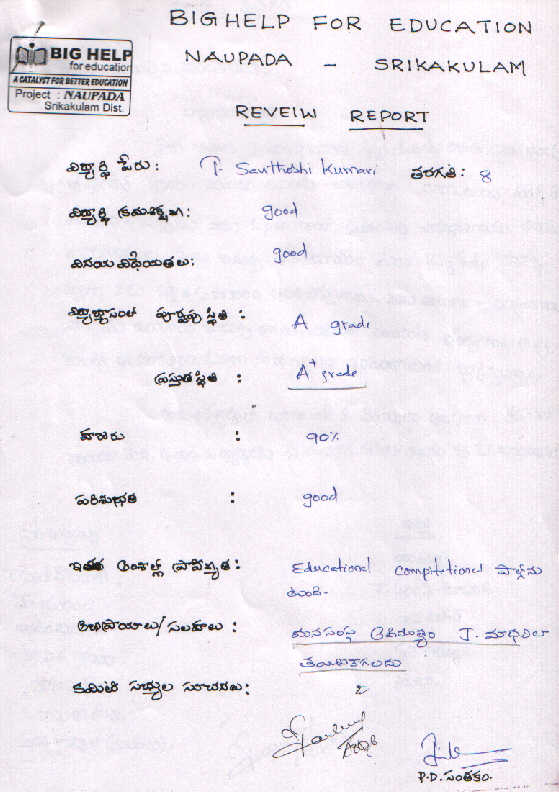 BIG HELP FOR EDUCATION
BIG HELP
for education
A CATALYST FOR BETTER EDUCATION
Project : NAUPADA
Srikakulam Dist.
NAUPADA - SRIKAKULAM
REVEIW REPORT
విద్యార్థి పేరు: P. Santhoshi Kumari తరగతి: 8
విద్యార్థి క్రమశిక్షణ: good
వినయ విధేయతలు: good
విద్యాసంబంధ పూర్వపు స్థితి : A grade
ప్రస్తుత స్థితి : A+ grade
హాజరు : 90%
పరిశుభ్రత : good
ఇతర అంశాల్లో ప్రావీణ్యత: Educational compititional పాల్గొను
తుంది.
అభిప్రాయాలు/సలహాలు: మన సంస్థ J.
కమిటి సభ్యుల సూచనలు:
P.D. సంతకం.